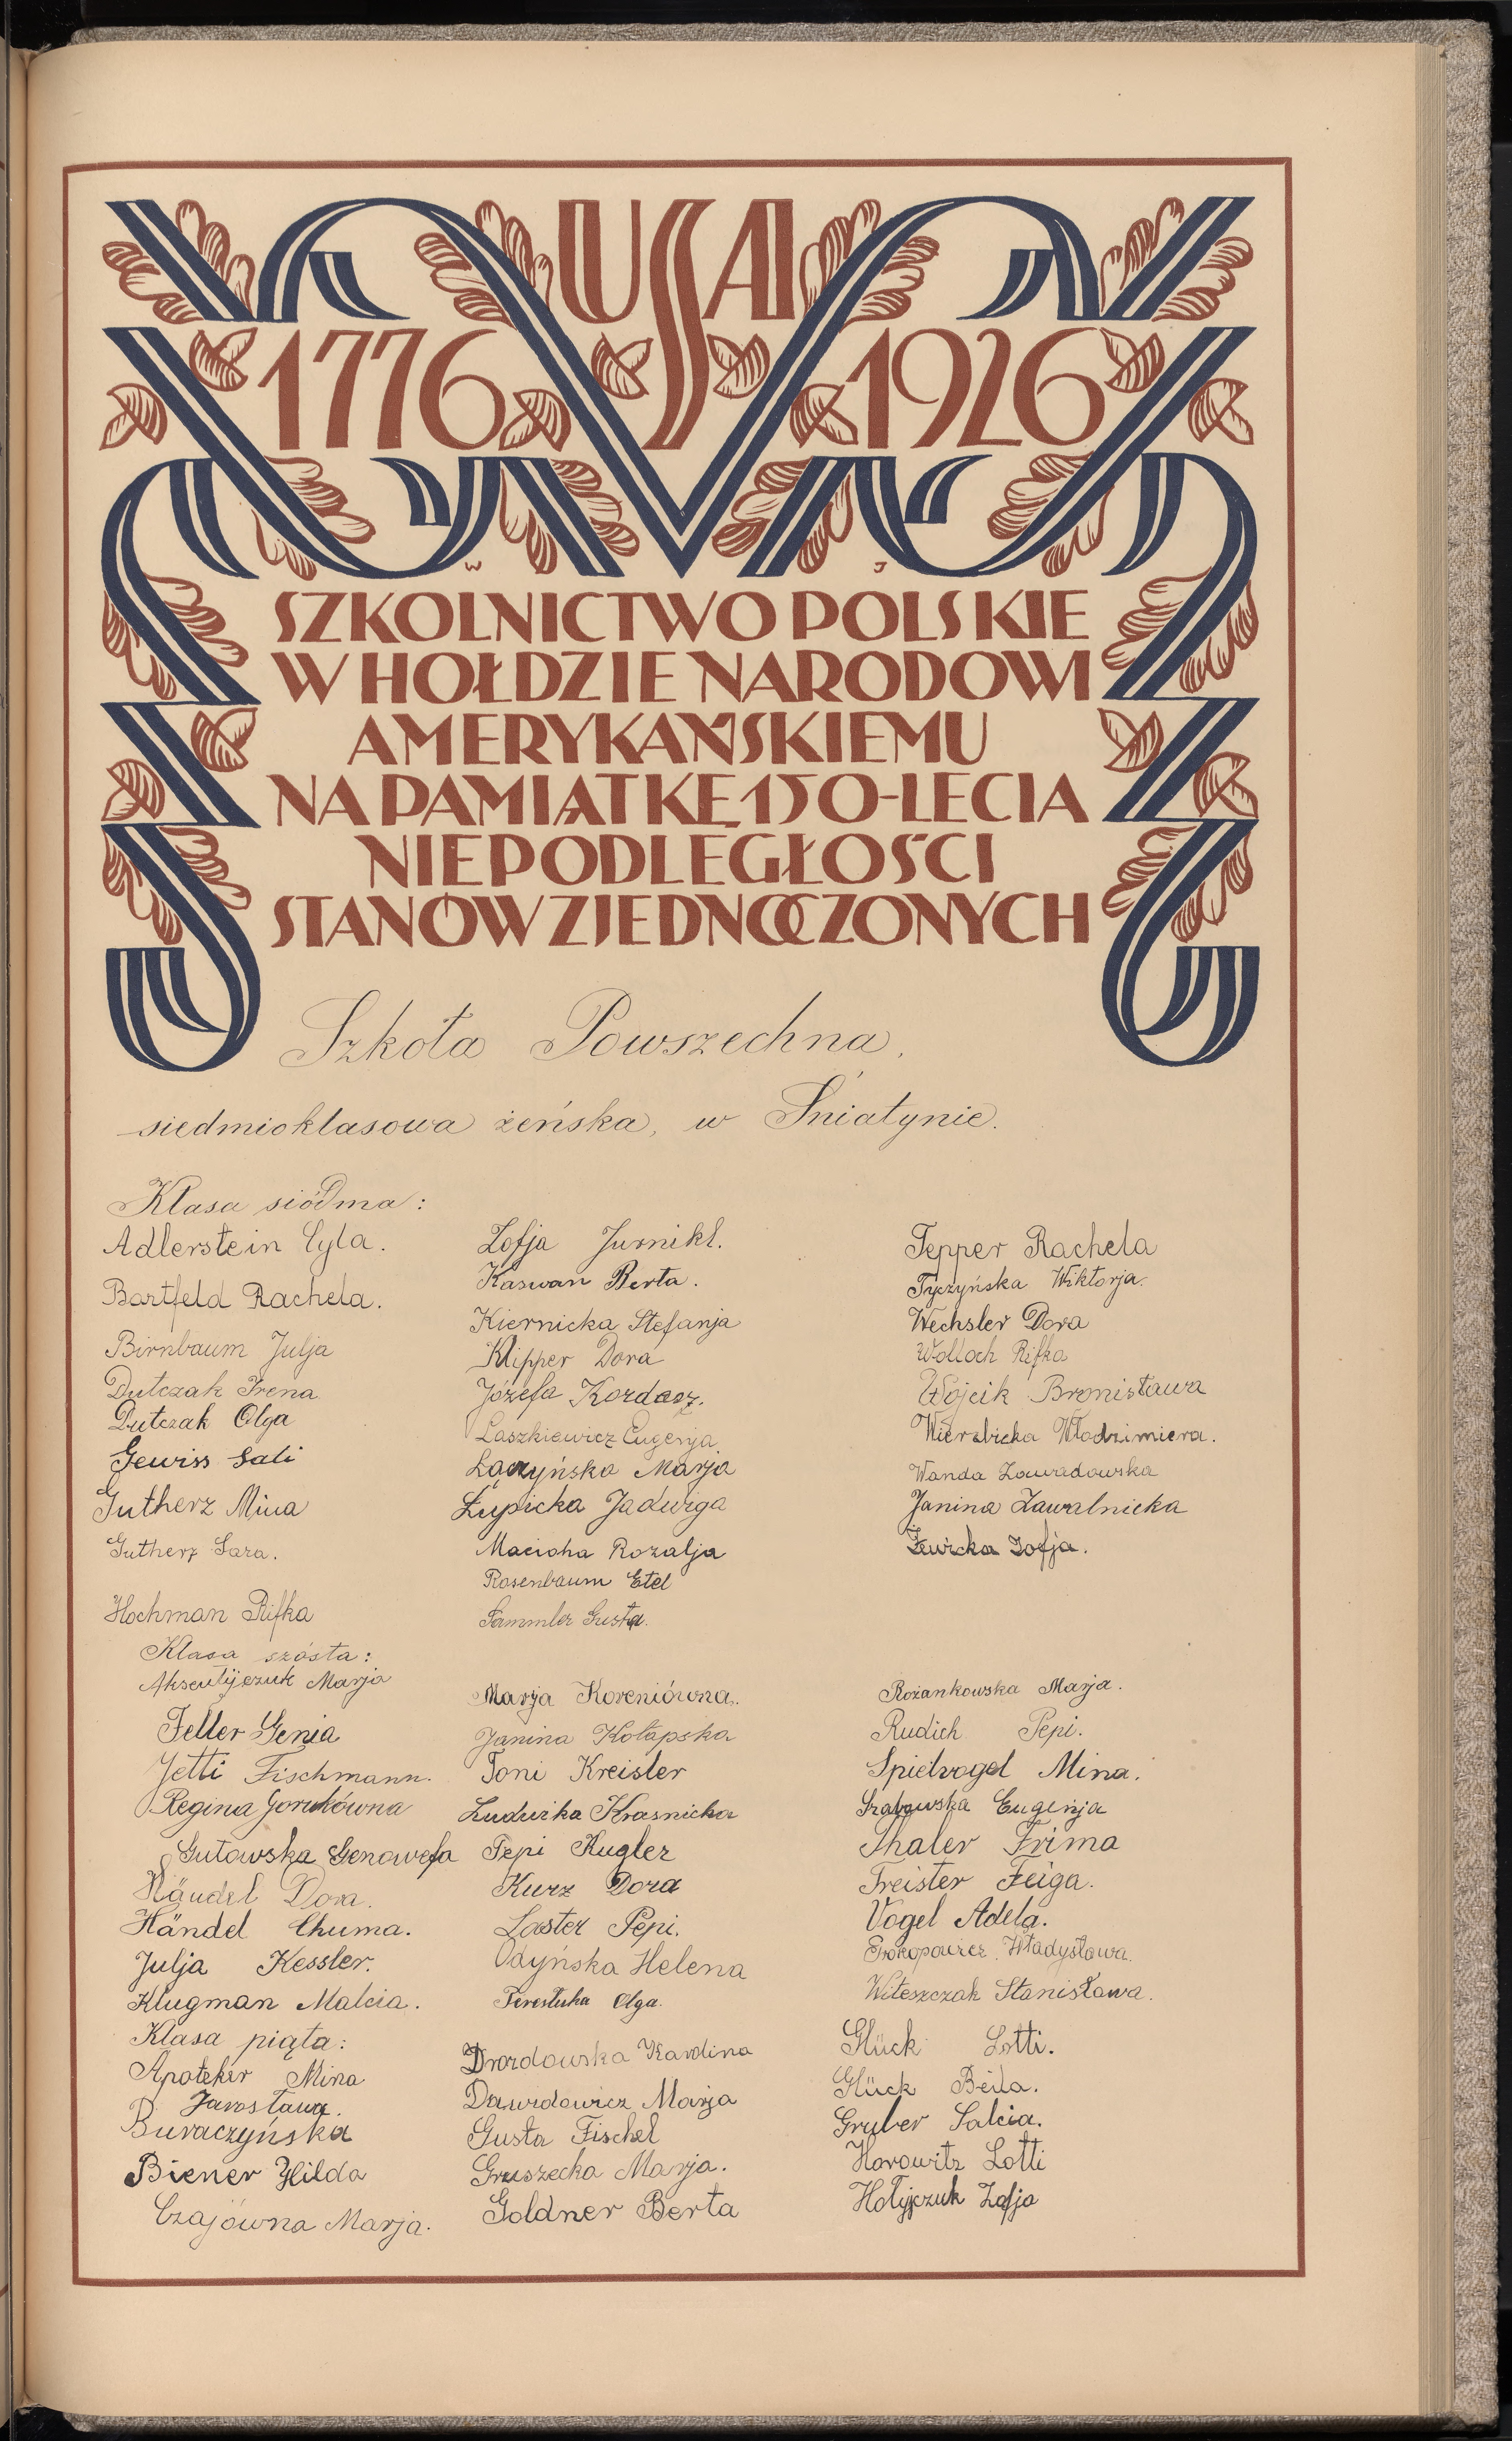 USA
1776 1926
W J
SZKOLNICTWO POLSKIE
W HOŁDZIE NARODOWI
AMERYKAŃSKIEMU
NA PAMIĄTKĘ 150-LECIA
NIEPODLEGŁOŚCI
STANÓW ZJEDNOCZONYCH
Szkoła Powszechna,
siedmioklasowa żeńska, w Śniatynie.
Klasa siódma:
Adlerstein Cyla.
Bartfeld Rachela.
Birnbaum Julja
Dutczak Irena
Dutczak Olga
Gewiss Sali
Gutherz Mina
Gutherz Sara.
Hochman Rifka
Zofja Jurnikl.
Kaswan Berta.
Kiernicka Stefanja
Klipper Dora
Józefa Kordasz.
Laszkiewicz Eugenja
Łączyńska Marja
Łupicka Jadwiga
Macioha Rozalja
Rosenbaum Etel
Sammler Gusta.
Tepper Rachela
Tyczyńska Wiktorja.
Wechsler Dora
Wolloch Rifka
Wójcik Bronisława
Wierzbicka Włodzimiera.
Wanda Zawadowska
Janina Zawalnicka
Żewicka Zofja.
Klasa szósta:
Aksentijczuk Marja
Feller Genia
Jetti Fischmann.
Regina Gorukówna
Gutowska Genowefa
Händel Dora.
Händel Chuma.
Julja Kessler.
Klugman Malcia.
Marja Koreniówna.
Janina Kołapska
Toni Kreisler
Ludwika Krasnicka
Pepi Kugler
Kurz Dora
Laster Pepi.
Odyńska Helena
Perestuka Olga.
Rożankowska Marja.
Rudich Pepi.
Spielvogel Mina.
Grabowska Eugenja
Thaler Frima
Treister Feiga.
Vogel Adela.
Prokopowicz Władysława.
Witeszczak Stanisława.
Klasa piąta:
Apoteker Mina
Jarosława.
Buraczyńska
Biener Hilda
Czajówna Marja.
Drozdowska Karolina
Dawidowicz Marja
Gusta Fischel
Gruszecka Marja.
Goldner Berta
Glück Lotti.
Glück Beila.
Gruber Salcia.
Horowitz Lotti
Hołyjczuk Zofja